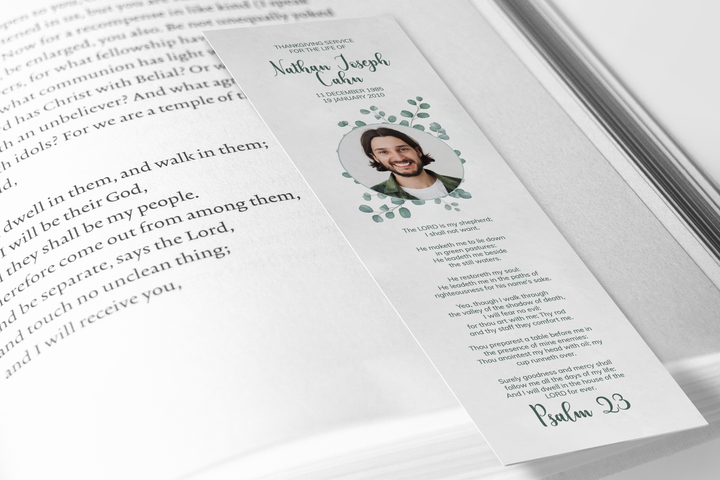 open to you,
tened in us, but you are
Now for a recompense in like kind (I speak
be enlarged, you also. Be not unequally yoked
for what fellowship has
what communion has light
has Christ with Belial? Or
an unbeliever? And what
idols? For we are a temple of
dwell in them, and walk in them;
I will be their God,
they shall be my people.
herefore come out from among them,
nd be separate, says the Lord,
and touch no unclean thing;
and I will receive you,
THANKGIVING SERVICE
FOR THE LIFE OF
Nathan Joseph
Cahn
11 DECEMBER 1985
19 JANUARY 2010
The LORD is my shepherd;
I shall not want.
He maketh me to lie down
in green pastures:
He leadeth me beside
the still waters.
He restoreth my soul:
He leadeth me in the paths of
righteousness for his name's sake.
Yea, though I walk through
the valley of the shadow of death,
I will fear no evil:
for thou art with me; Thy rod
and thy staff they comfort me.
Thou preparest a table before me in
the presence of mine enemies:
Thou anointest my head with oil; my
cup runneth over.
Surely goodness and mercy shall
follow me all the days of my life:
And I will dwell in the house of the
LORD for ever.
Psalm 23